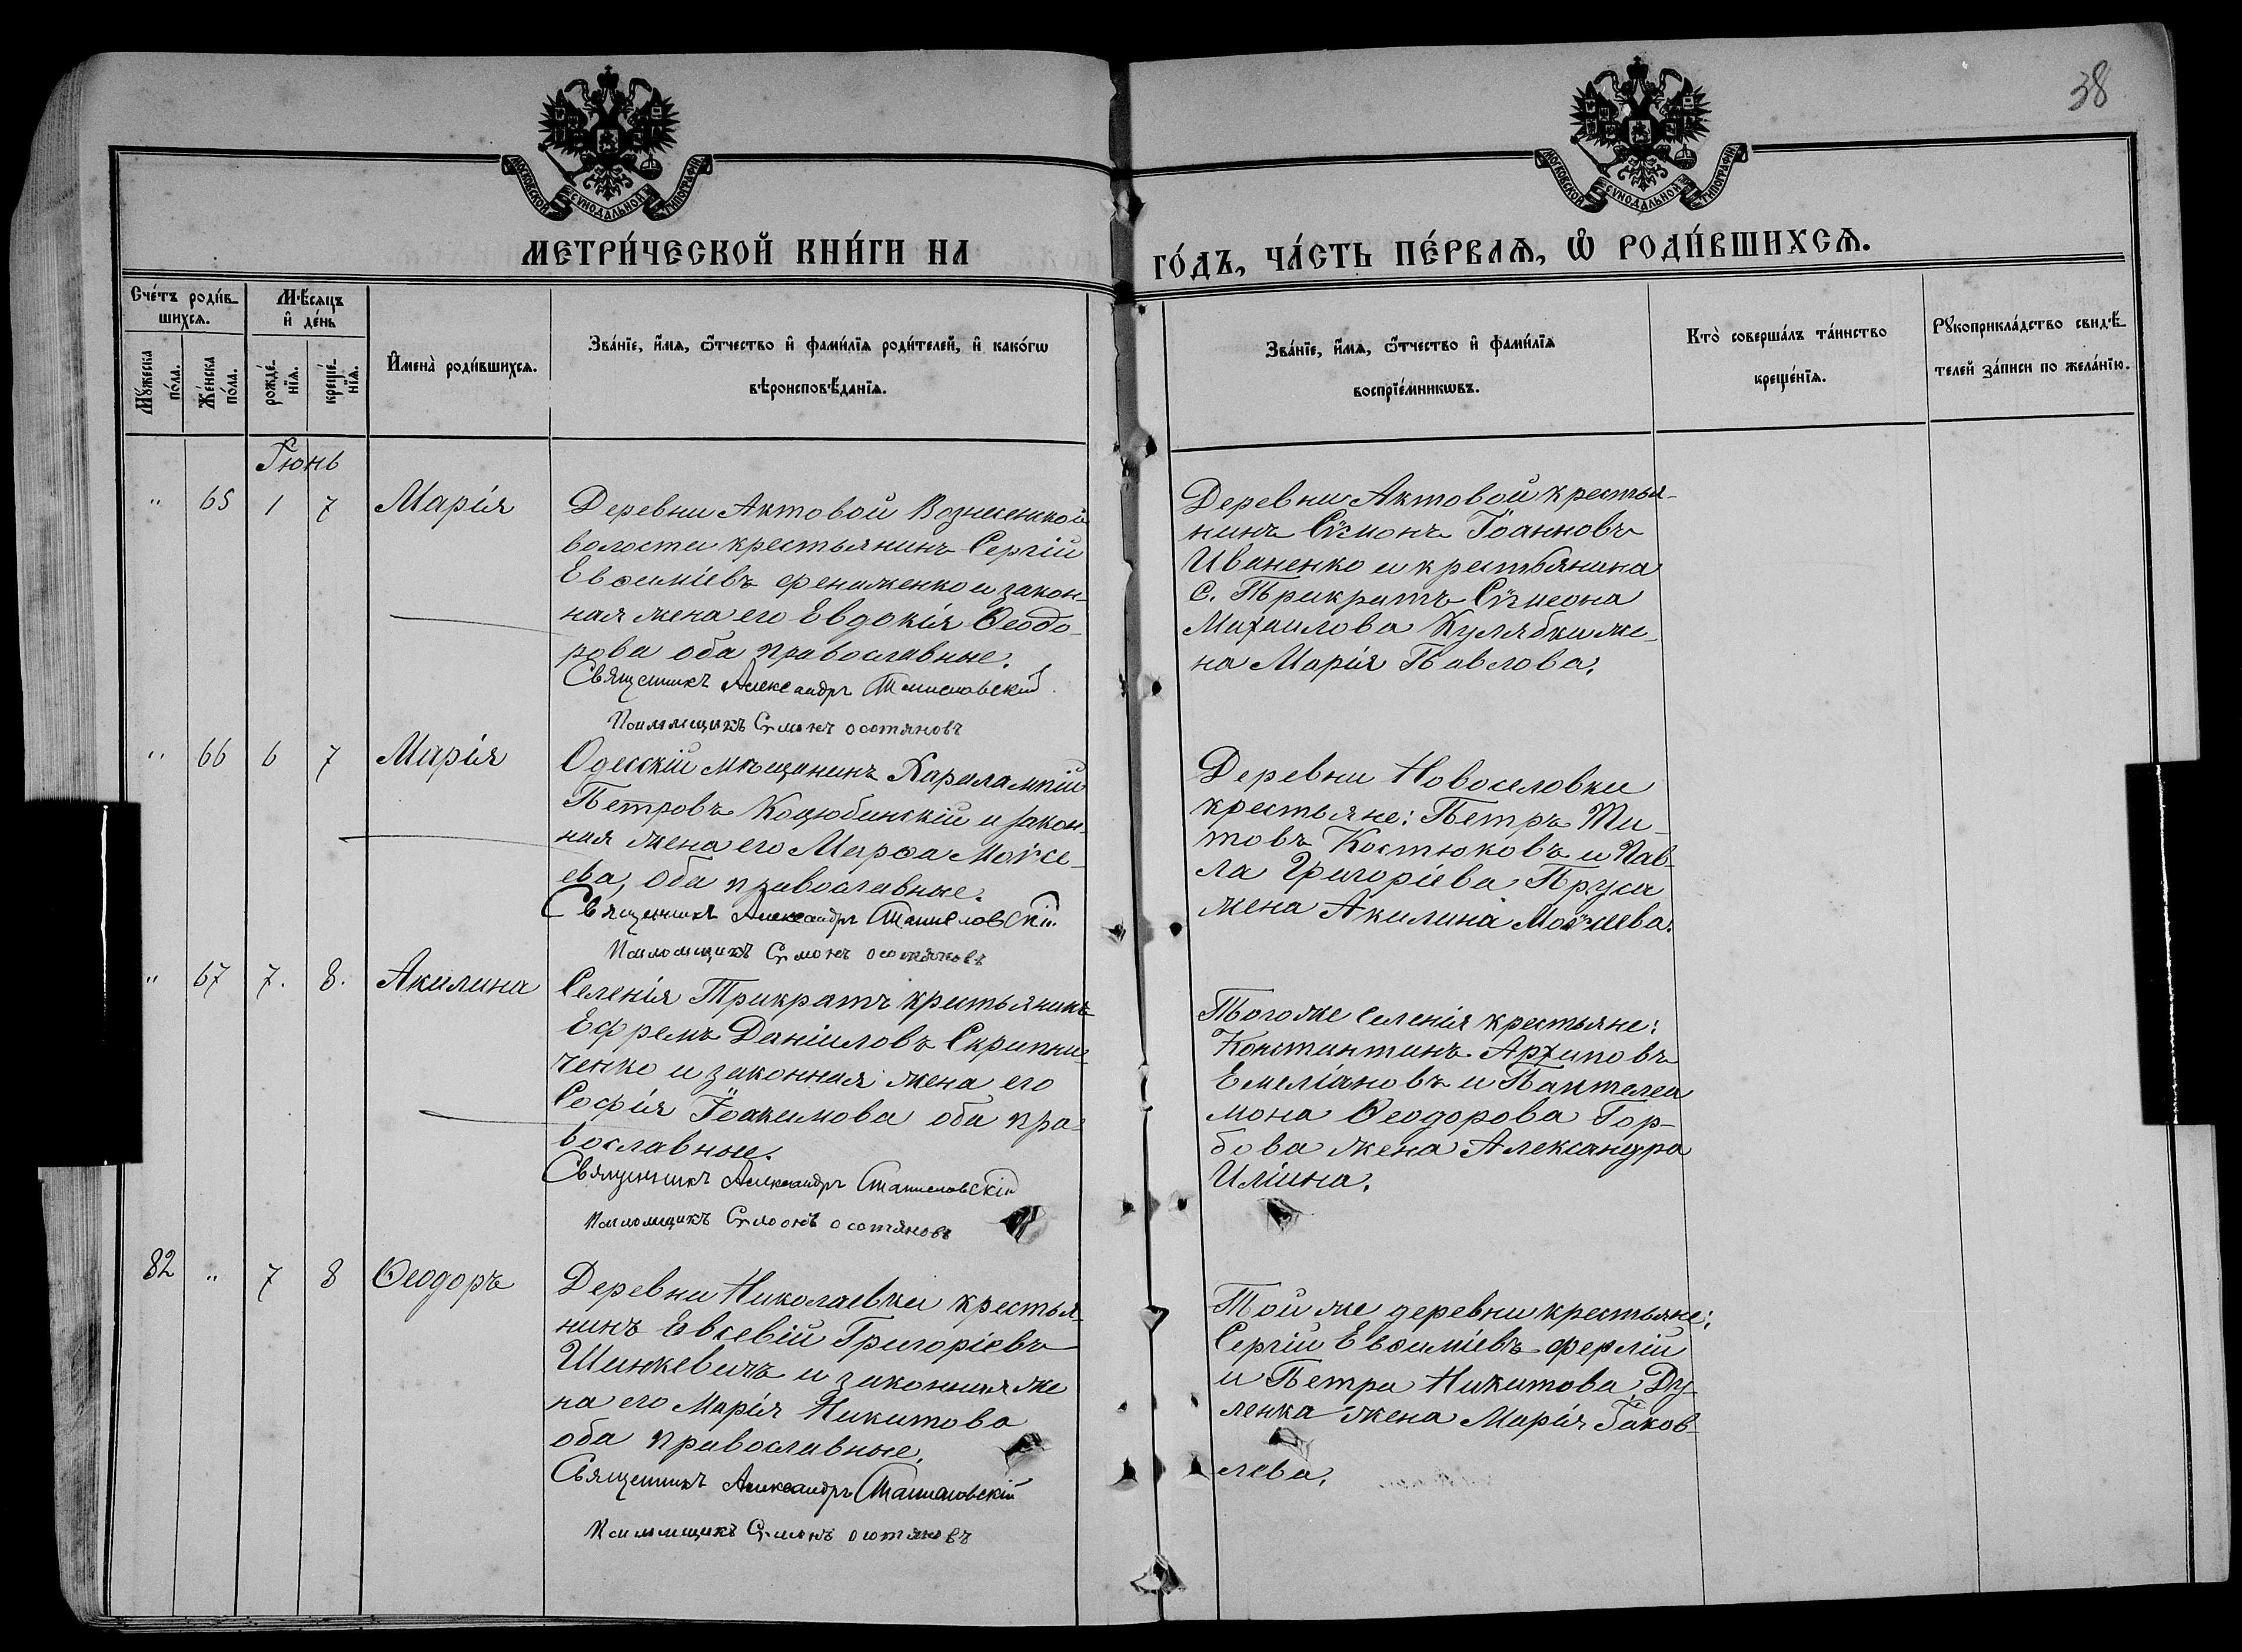 38
МОСКОВСКОЙ СѴНОДАЛЬНОЙ ТИПОГРАФІИ
МОСКОВСКОЙ СѴНОДАЛЬНОЙ ТИПОГРАФІИ
МЕТРИ́ЧЕСКОЙ КНИ́ГИ НА
ГО́ДЪ, ЧА́СТЬ ПЕ́РВАѦ, Ѡ҆ РОДИ́ВШИХСѦ.
Сче́тъ роди́в-
шихсѧ.
Мꙋ́жеска
по́ла.
Же́нска
по́ла.
Мѣ́сѧцъ
и҆ де́нь
рожде́-
нїѧ.
креще́-
нїѧ.
И҆мена̀ роди́вшихсѧ.
Зва́нїе, и҆́мѧ, ѻ҆́тчество и҆ фами́лїѧ роди́телей, и҆ како́гѡ
вѣроисповѣ́данїѧ.
Зва́нїе, и҆́мѧ, ѻ҆́тчество и҆ фами́лїѧ
воспрїе́мникѡвъ.
Кто̀ соверша́лъ та́инство
креще́нїѧ.
Рꙋкоприкла́дство свидѣ́-
телей за́писи по жела́нїю.
Іюнь
" 65 1 7 Марія
Деревни Актовой Вознесенской
волости крестьянинъ Сергій
Евѳиміевъ Фениженко и закон-
ная жена его Евдокія Ѳеодо-
рова оба православные.
Священникъ Александръ Станиславскій
Псаломщикъ Сѵмонъ
Деревни Актовой крестья-
нинъ Сѵмонъ Іоанновъ
Иваненко и крестьянина
с. Трикратъ Сѵмеона
Михаилова Кулябки же-
на Марія Павлова.
" 66 6 7 Марія
Одесскій мѣщанинъ Харалампій
Петровъ Коцюбинскій и закон-
ная жена его Марѳа Моѵсе-
ева, оба православные.
Священникъ Александръ Станиславскій
Псаломщикъ Сѵмонъ
Деревни Новоселовки
крестьяне: Петръ Ти-
товъ Костюковъ и Пав-
ла Григоріева Пруса
жена Акилина Моѵсеева.
" 67 7. 8. Акилина
Селенія Трикратъ крестьянинъ
Ефремъ Даніиловъ Скрипни-
ченко и законная жена его
Софія Іоакимова оба пра-
вославные.
Священникъ Александръ Станиславскій
Псаломщикъ Сѵмонъ
Того же селенія крестьяне:
Константинъ Архиповъ
Емеліановъ и Пантелеи
мона Ѳеодорова Гор-
бова жена Александра
Иліина.
82 " 7 8 Ѳеодоръ
Деревни Николаевки крестья-
нинъ Евсевій Григоріевъ
Шинкевичъ и законная же
на его Марія Никитова
оба православные.
Священникъ Александръ Станиславскій
Псаломщикъ Сѵмонъ
Той же деревни крестьяне:
Сергій Евѳиміевъ Ферлій
и Петра Никитова Ду-
ленка жена Марія Іаков-
лева.